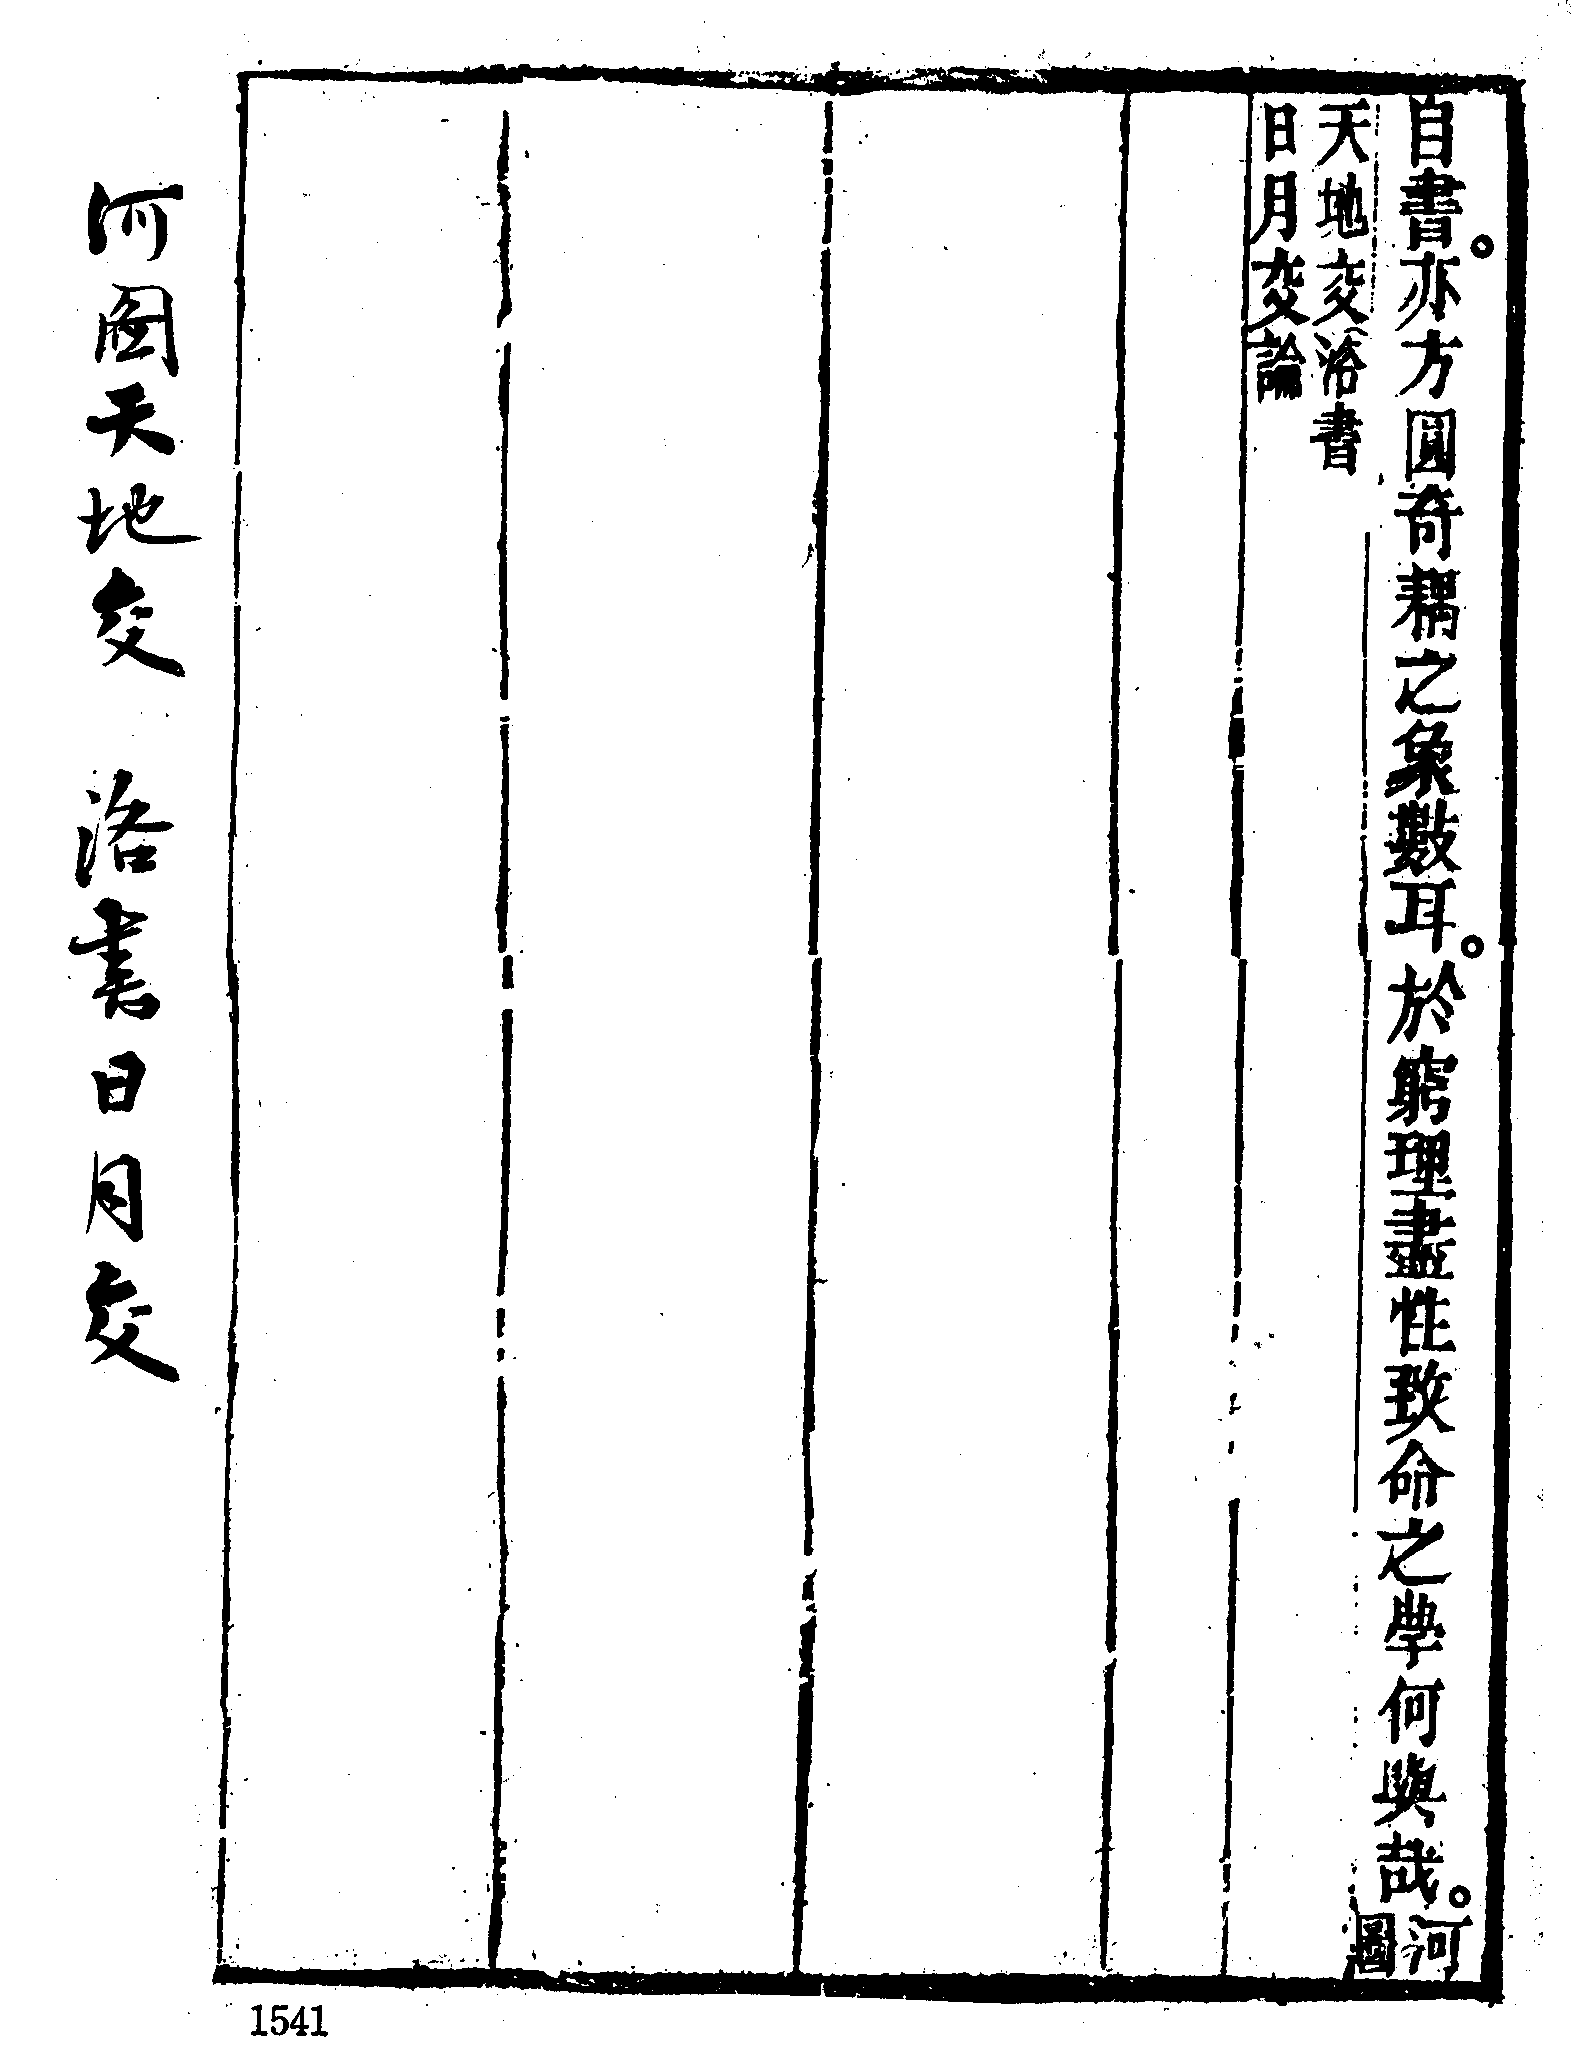 自書。亦方圓奇耦之象數耳。於窮理盡性致命之學何與哉。河圖
天地交洛書
日月交論
河圖天地交 洛書日月交
1541